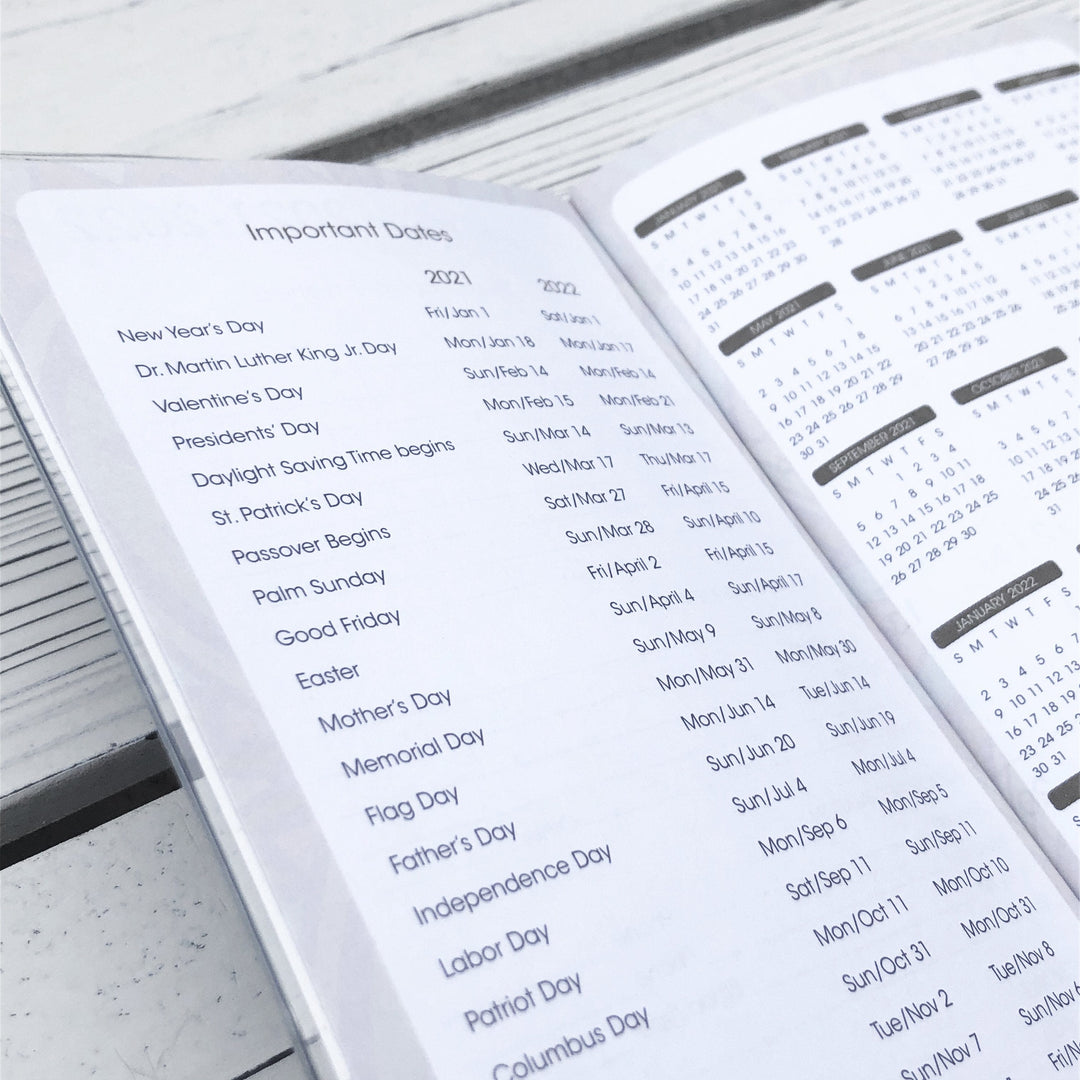 Important Dates
2021 2022
New Year's Day Fri/Jan 1 Sat/Jan 1
Dr. Martin Luther King Jr. Day Mon/Jan 18 Mon/Jan 17
Valentine's Day Sun/Feb 14 Mon/Feb 14
Presidents' Day Mon/Feb 15 Mon/Feb 21
Daylight Saving Time begins Sun/Mar 14 Sun/Mar 13
St. Patrick's Day Wed/Mar 17 Thu/Mar 17
Passover Begins Sat/Mar 27 Fri/April 15
Palm Sunday Sun/Mar 28 Sun/April 10
Good Friday Fri/April 2 Fri/April 15
Easter Sun/April 4 Sun/April 17
Mother's Day Sun/May 9 Sun/May 8
Memorial Day Mon/May 31 Mon/May 30
Flag Day Mon/Jun 14 Tue/Jun 14
Father's Day Sun/Jun 20 Sun/Jun 19
Independence Day Sun/Jul 4 Mon/Jul 4
Labor Day Mon/Sep 6 Mon/Sep 5
Patriot Day Sat/Sep 11 Sun/Sep 11
Columbus Day Mon/Oct 11 Mon/Oct 10
Sun/Oct 31 Mon/Oct 31
Tue/Nov 2 Tue/Nov 8
Sun/Nov 7 Sun/Nov
JANUARY 2021
S M T W T F S
1 2
3 4 5 6 7 8 9
10 11 12 13 14 15 16
17 18 19 20 21 22 23
24 25 26 27 28 29 30
31
MAY 2021
S M T W T F S
1
2 3 4 5 6 7 8
9 10 11 12 13 14 15
16 17 18 19 20 21 22
23 24 25 26 27 28 29
30 31
JUNE 2021
S M T W T F S
1 2 3 4 5
6 7 8 9 10 11 12
13 14 15 16 17 18 19
20 21 22 23 24 25 26
27 28 29 30
SEPTEMBER 2021
S M T W T F S
1 2 3 4
5 6 7 8 9 10 11
12 13 14 15 16 17 18
19 20 21 22 23 24 25
26 27 28 29 30
OCTOBER 2021
S M T W T F
1
3 4 5 6 7
10 11 12 13
17 18 19 20
24 25 26
31
JANUARY 2022
S M T W T F S
2 3 4 5 6 7
9 10 11 12 13
16 17 18 19
23 24 25
30 31